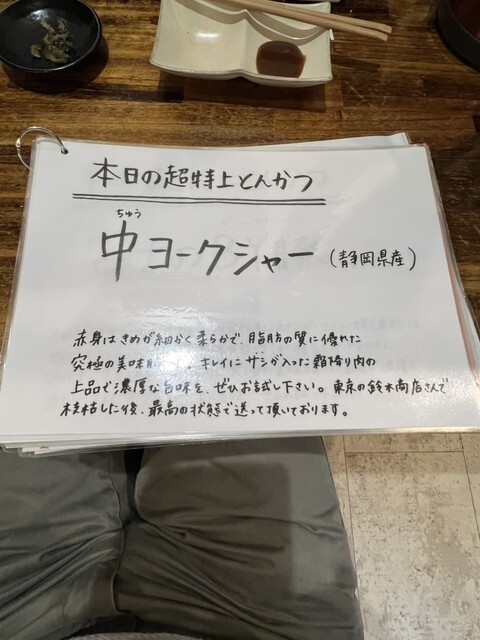 本日の超特上とんかつ
ちゅう
中ヨークシャー (静岡県産)
赤身はきめが細かく柔らかで、脂肪の質に優れた
究極の美味豚 。キレイにサシが入った霜降り肉の
上品で濃厚な旨味を、ぜひお試し下さい。東京の鈴木商店さんで
枝枯した後、最高の状態で送って頂いております。